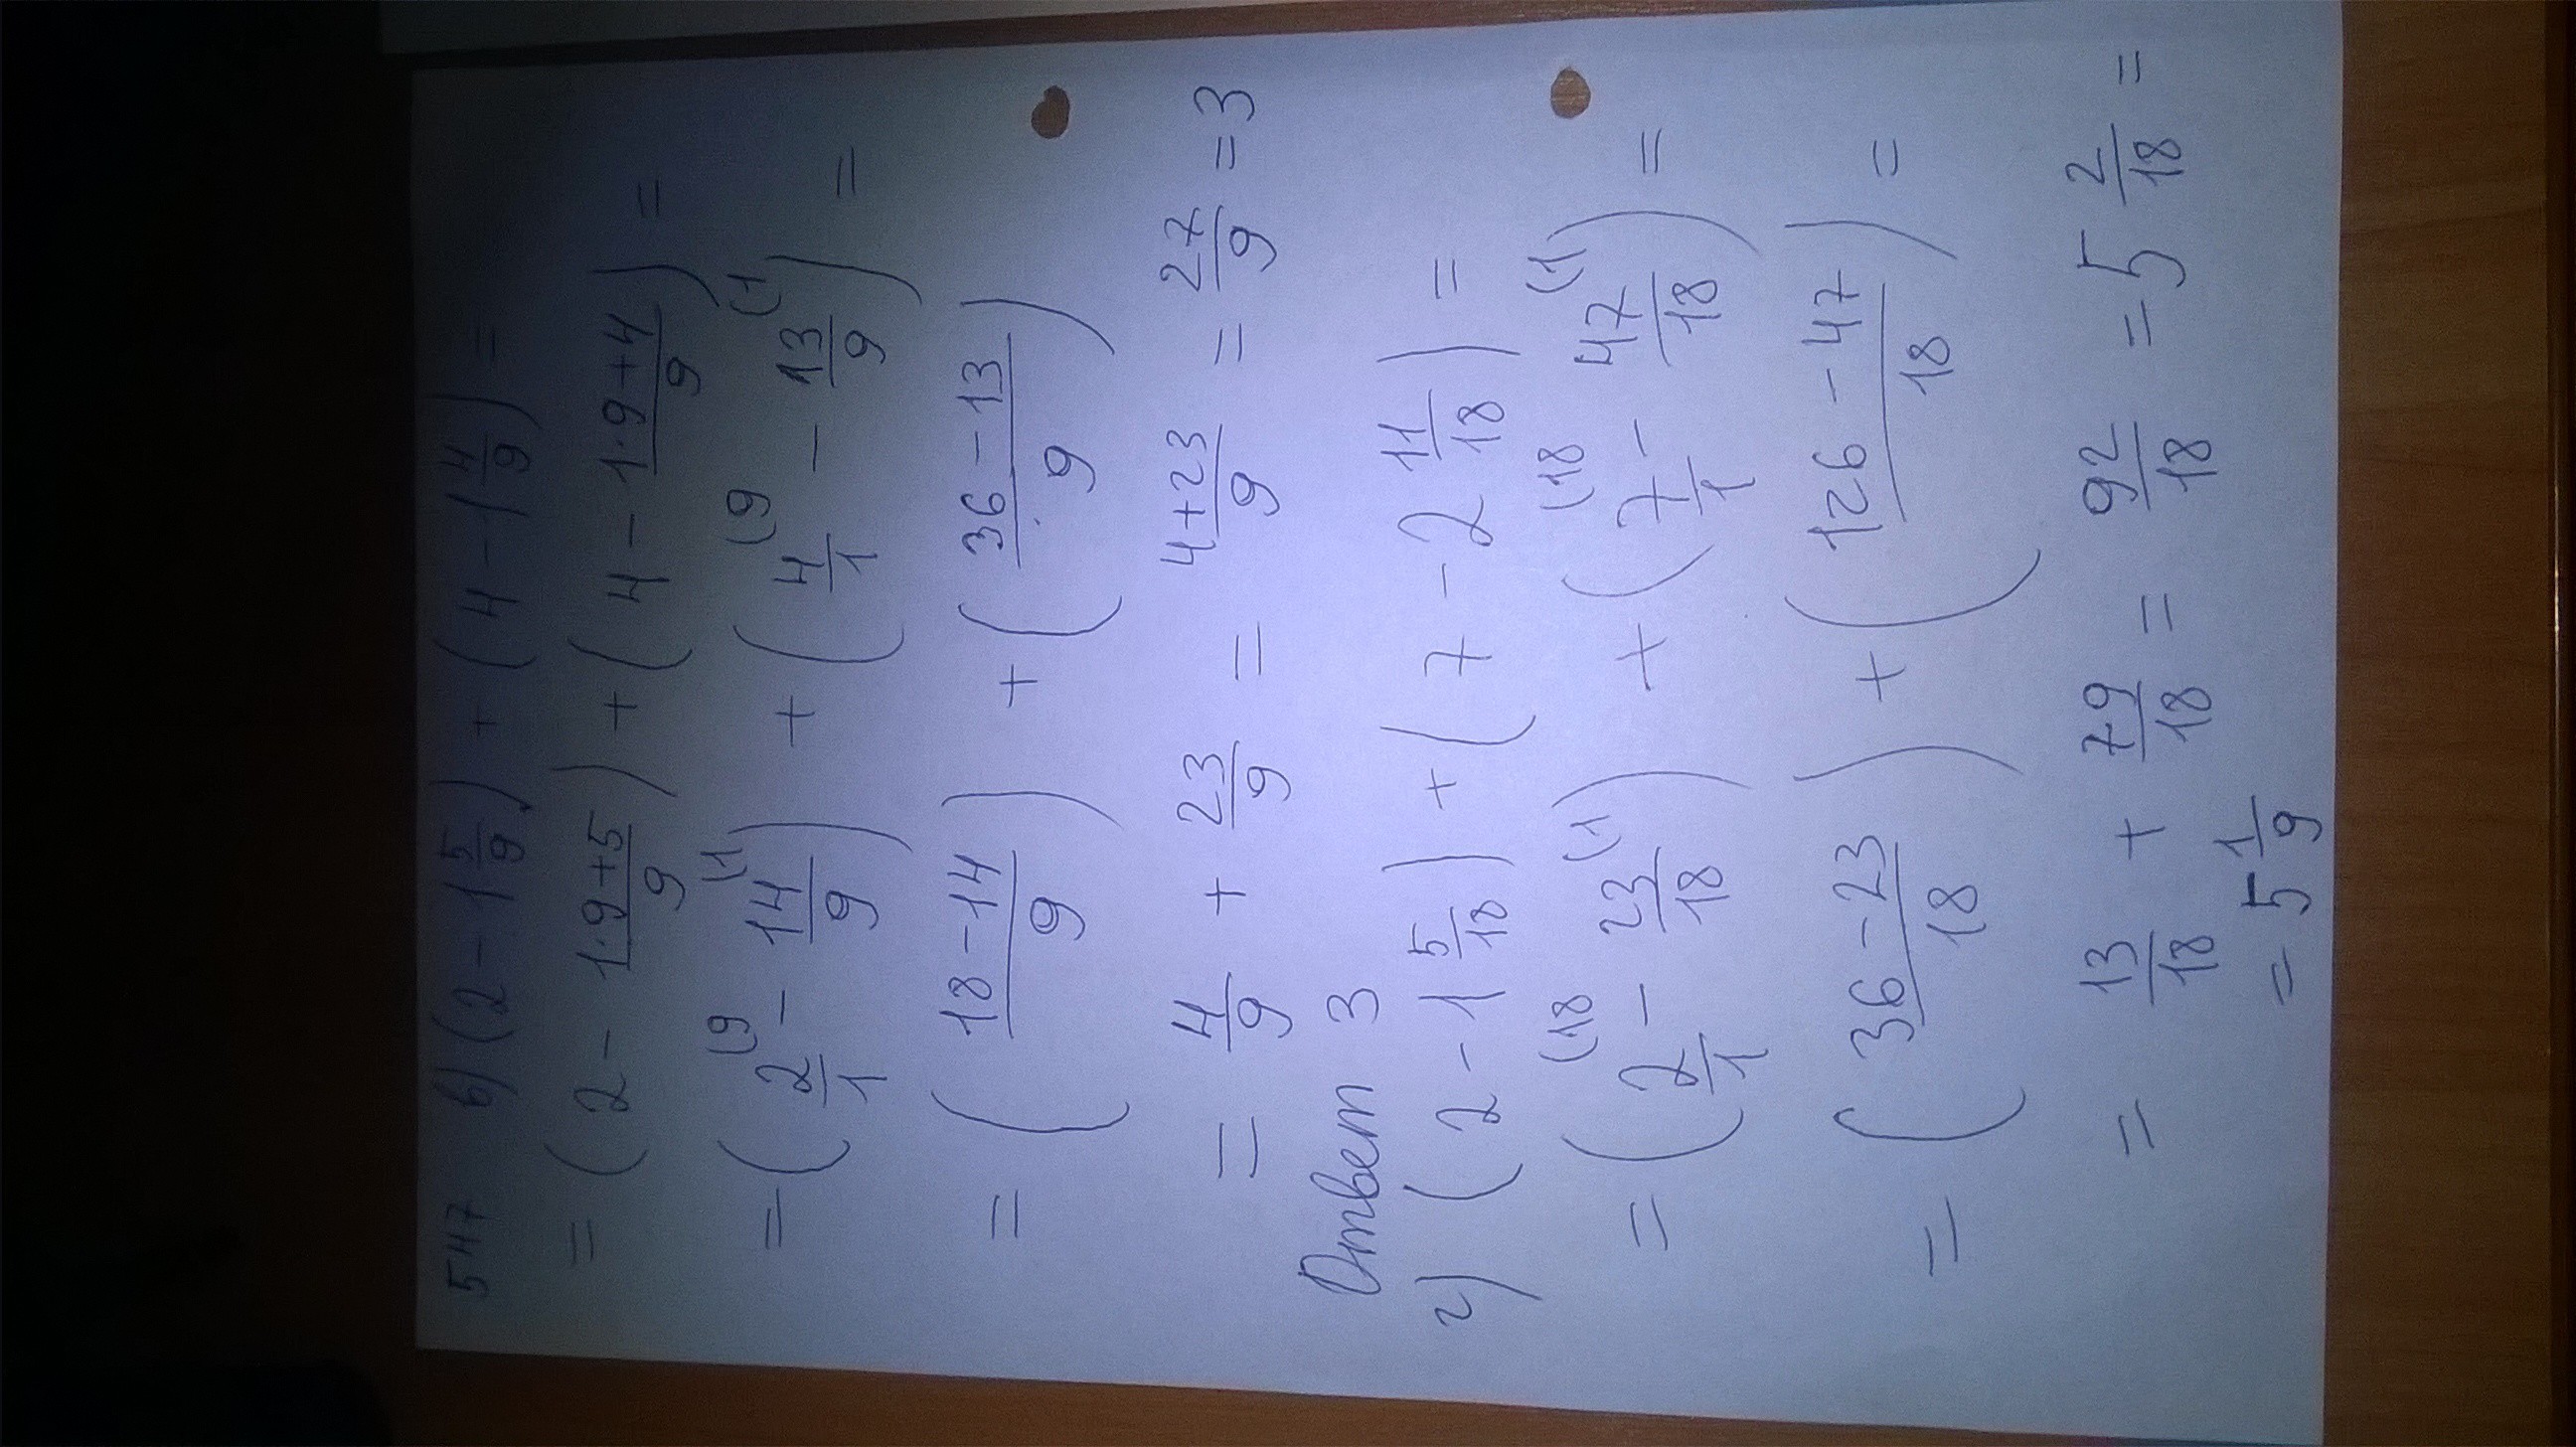 547 в) (2 - 1 5/9) + (4 - 1 4/9) =
= (2 - 1·9+5/9) + (4 - 1·9+4/9) =
= (2/1 (9 - 14/9 (1) + (4/1 (9 - 13/9 (1) =
= (18-14/9) + (36-13/9)
= 4/9 + 23/9 = 4+23/9 = 27/9 = 3
Ответ 3
г) (2 - 1 5/18) + (7 - 2 11/18) =
= (2/1 (18 - 23/18 (1) + (7/1 (18 - 47/18 (1) =
= (36-23/18) + (126-47/18) =
= 13/18 + 79/18 = 92/18 = 5 2/18 =
= 5 1/9